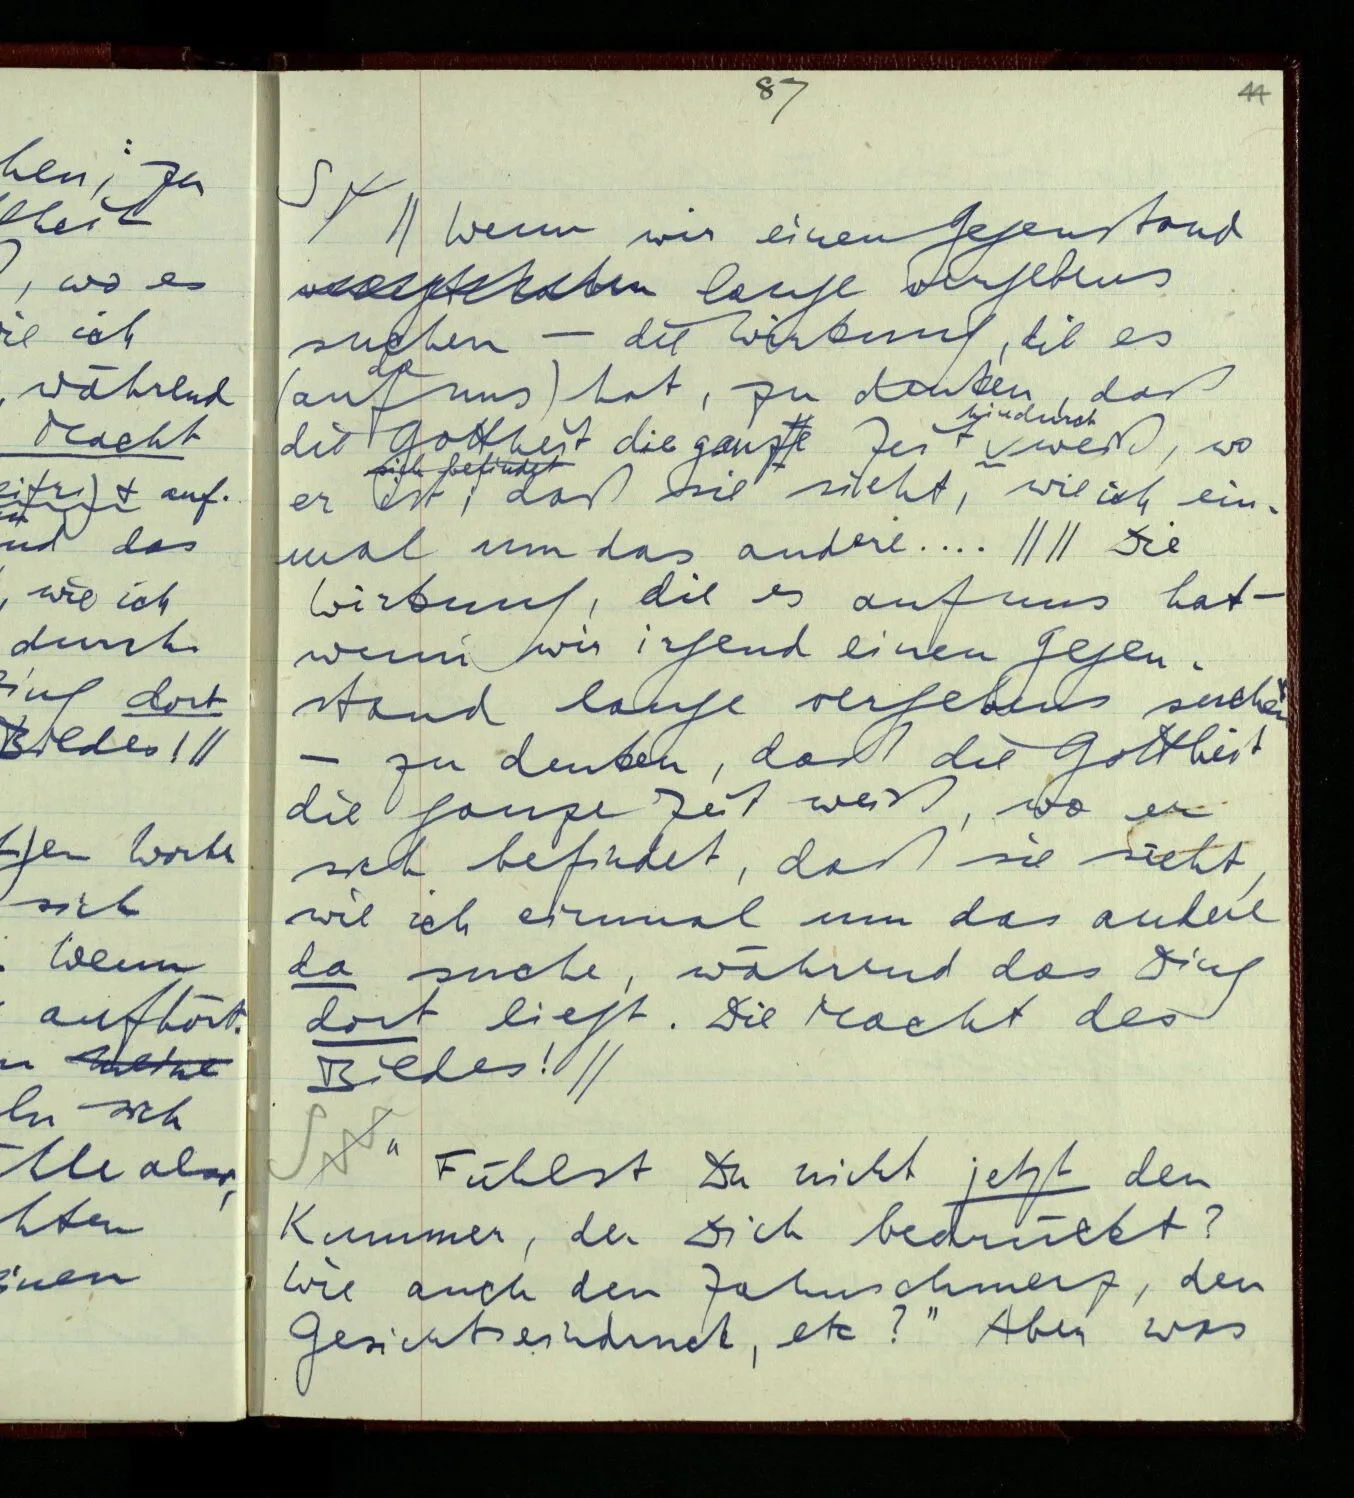 hen; zu
lheit
, wo es
wie ich
, während
Macht
eifri)t auf.
und das
, wie ich
durch
Ding dort
Bildes! //
t)en Worte
sich
. Wenn
aufhört.
meine
ln sich
hle aber,
hten
einen
87
44
S // Wenn wir einen Gegenstand
lange vergebens
suchen — die Wirkung, die es
da
(auf uns) hat, zu denken, daß
hindurch
die Gottheit die ganze Zeit weiß, wo
sich befindet
er ist; daß sie sieht, wie ich ein-
mal um das andere.... //// Die
Wirkung, die es auf uns hat —
wenn wir irgend einen Gegen-
stand lange vergebens suchen
— zu denken, daß die Gottheit
die ganze Zeit weiß, wo er
sich befindet, daß sie sieht,
wie ich einmal um das andere
da suche, während das Ding
dort liegt. Die Macht des
Bildes! //
S " Fühlst Du nicht jetzt den
Kummer, der Dich bedrückt?
Wie auch den Zahnschmerz, den
Gesichtseindruck, etc?" Aber was